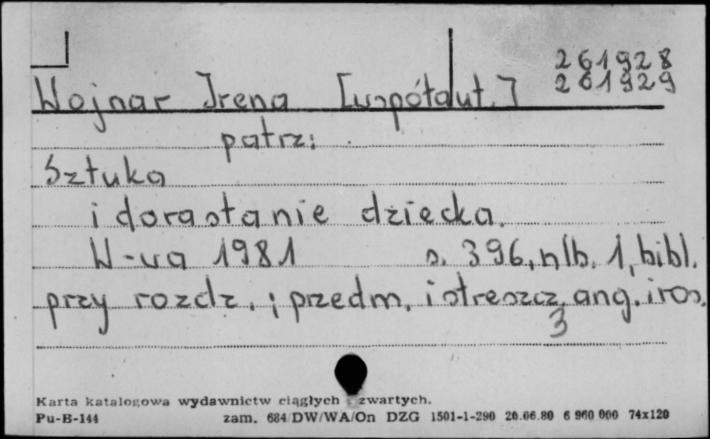 261928
Wojnar Irena [współaut.] 261929
patrz:
Sztuka
i dorastanie dziecka.
W-wa 1981 s. 396, nlb. 1, bibl.
przy rozdz. ; przedm. i streszcz. ang. i ros.
3
Karta katalogowa wydawnictw ciągłych i zwartych.
Pu-B-144 zam. 684/DW/WA/On DZG 1501-1-290 20.06.80 6 960 000 74x120